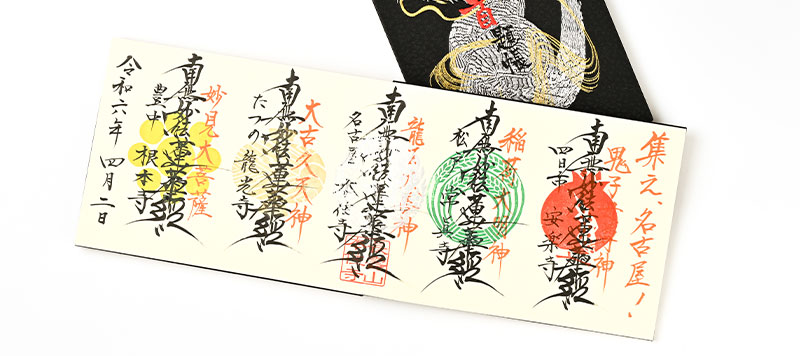 集え、名古屋！
鬼子母神
南無妙法蓮華経
四日市 安楽寺
稲荷大明神
南無妙法蓮華経
松戸
南無妙法蓮華経
名古屋
大古久天神
南無妙法蓮華経
たつの 龍光寺
妙見大菩薩
南無妙法蓮華経
豊中 根本寺
令和六年 四月二日